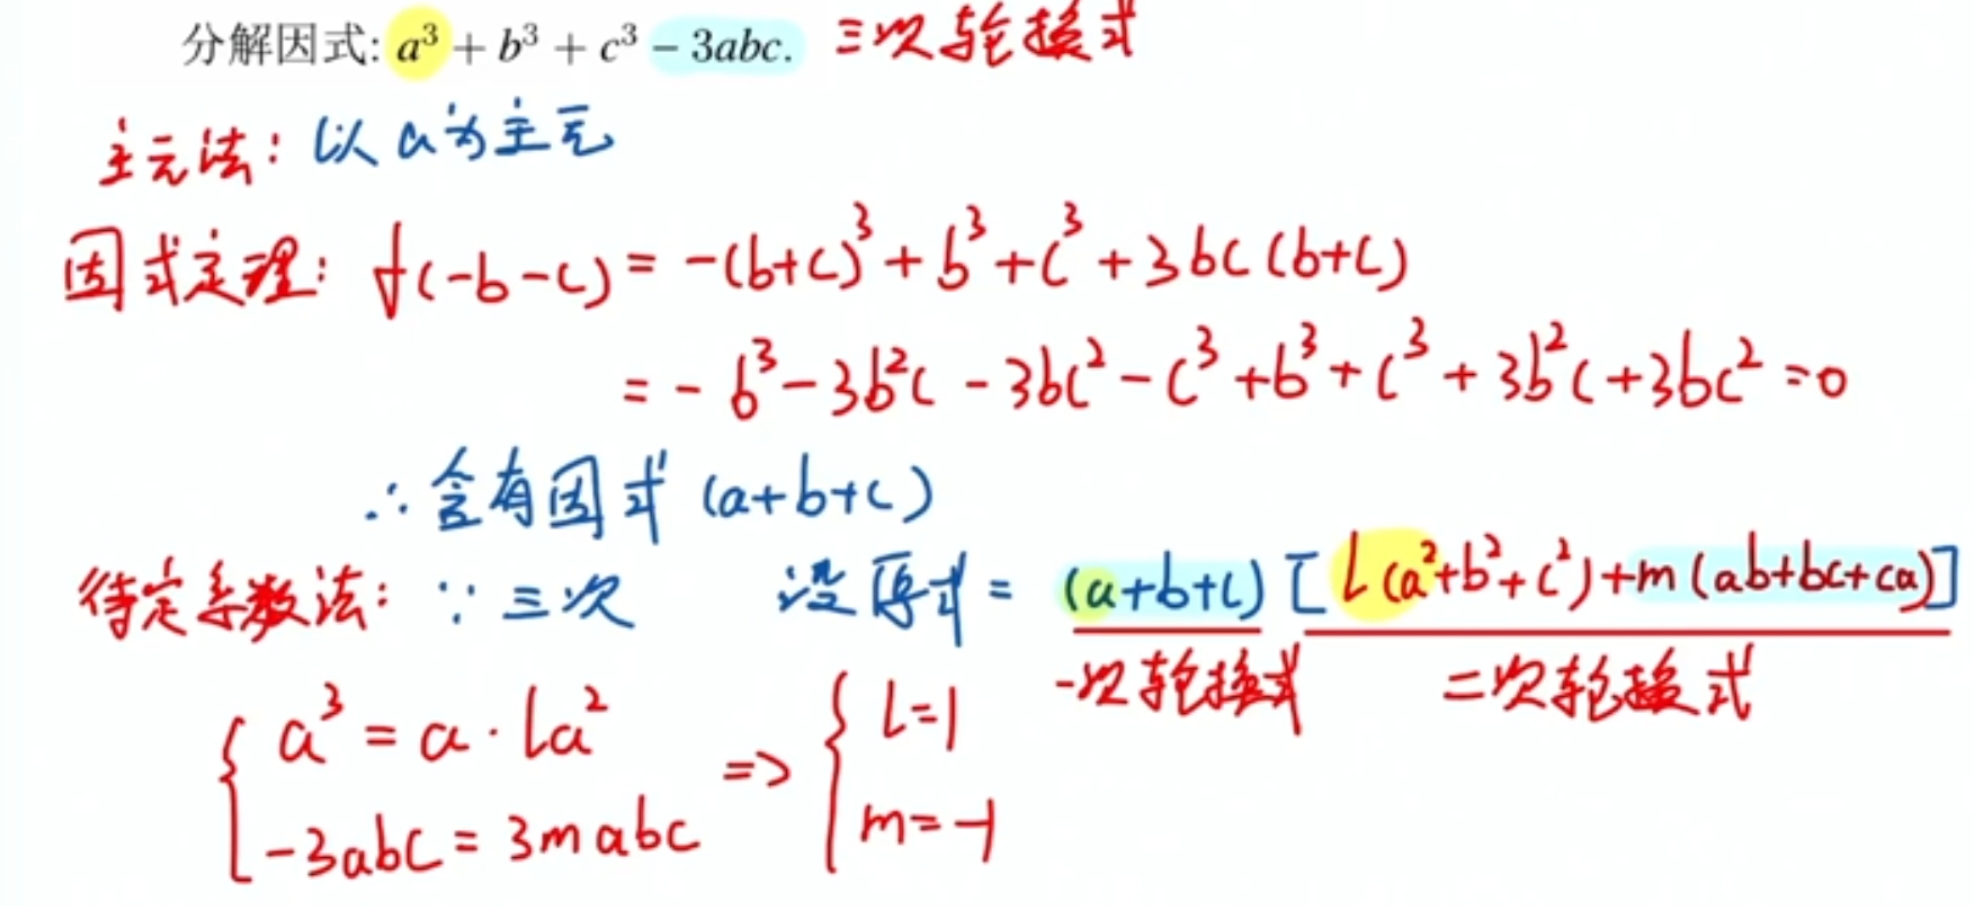 分解因式: a³ + b³ + c³ − 3abc. 三次轮换式
主元法: 以a为主元
因式定理: f(-b-c) = -(b+c)³ + b³ + c³ + 3bc(b+c)
= - b³ - 3b²c - 3bc² - c³ + b³ + c³ + 3b²c + 3bc² = 0
∴ 含有因式 (a+b+c)
待定系数法: ∵ 三次 设原式 = (a+b+c) [l(a²+b²+c²)+m(ab+bc+ca)]
一次轮换式 二次轮换式
{ a³ = a · la² => { l=1
-3abc = 3mabc m=-1